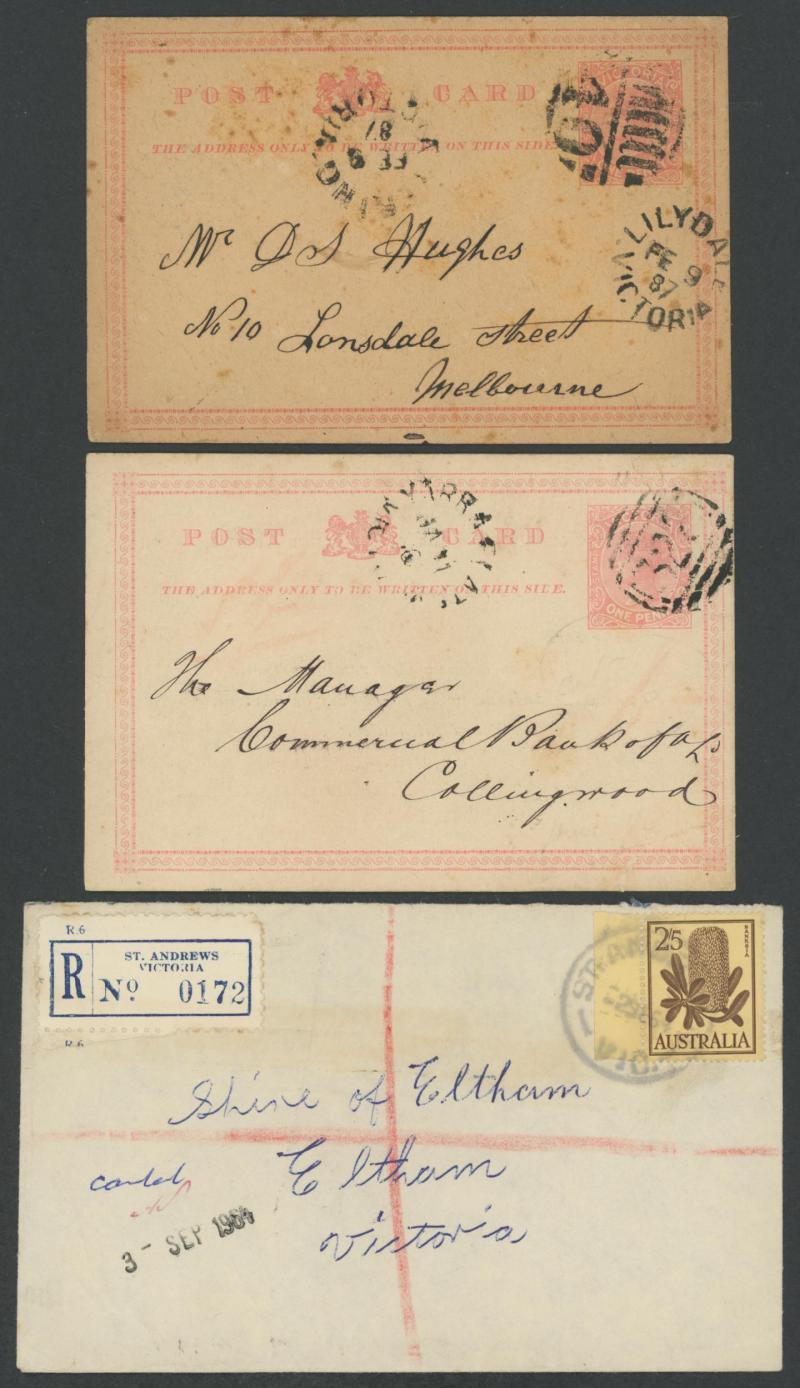 POST CARD
THE ADDRESS ONLY TO BE WRITTEN ON THIS SIDE.
VICTORIA
FE 9
87
LILYDALE
FE 9
87
VICTORIA
Mr D S Hughes
No 10 Lonsdale street
Melbourne
POST CARD
THE ADDRESS ONLY TO BE WRITTEN ON THIS SIDE.
YARRA FLATS
ONE PENNY
The Manager
Commercial Bank of
Collingwood
R.6
R
ST. ANDREWS
VICTORIA
No 0172
R.6
2/5
BANKSIA
AUSTRALIA
Shire of Eltham
Eltham
Victoria
3 - SEP 1964